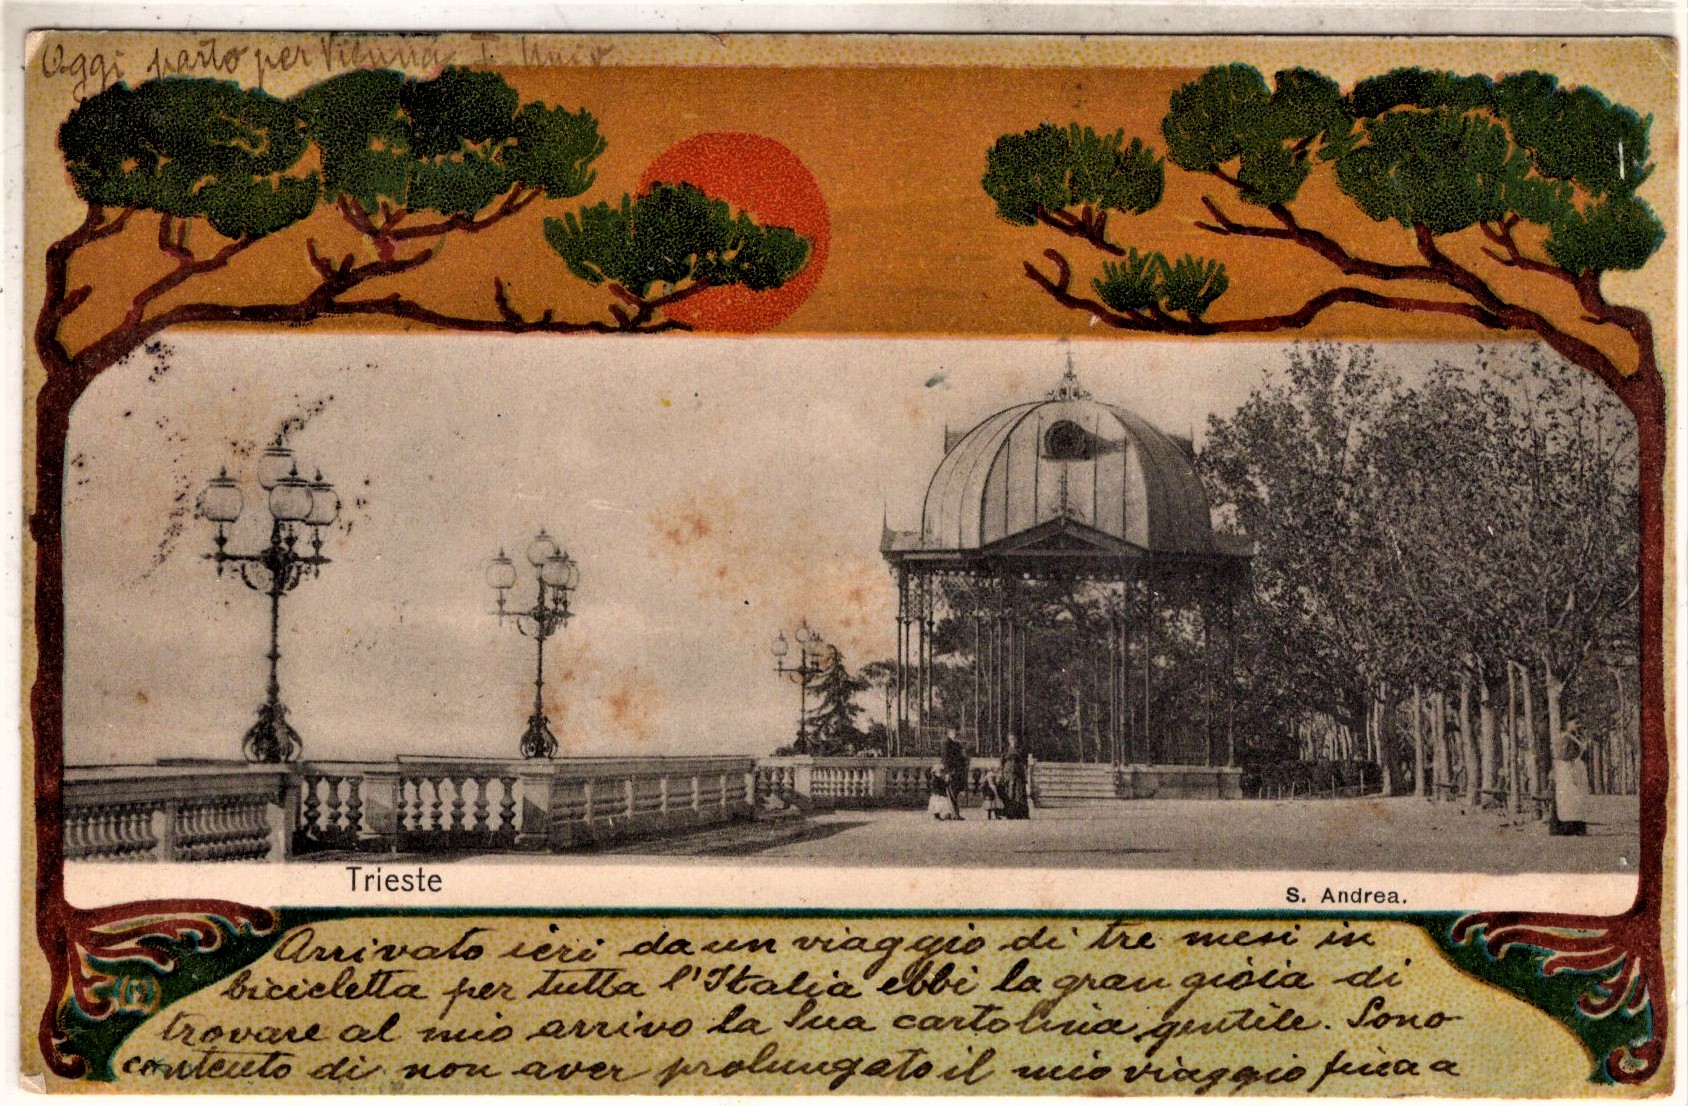 Oggi parto per Vienna
Trieste
S. Andrea.
Arrivato ieri da un viaggio di tre mesi in
bicicletta per tutta l'Italia ebbi la gran gioia di
trovare al mio arrivo la Sua cartolina gentile. Sono
contento di non aver prolungato il mio viaggio fina a